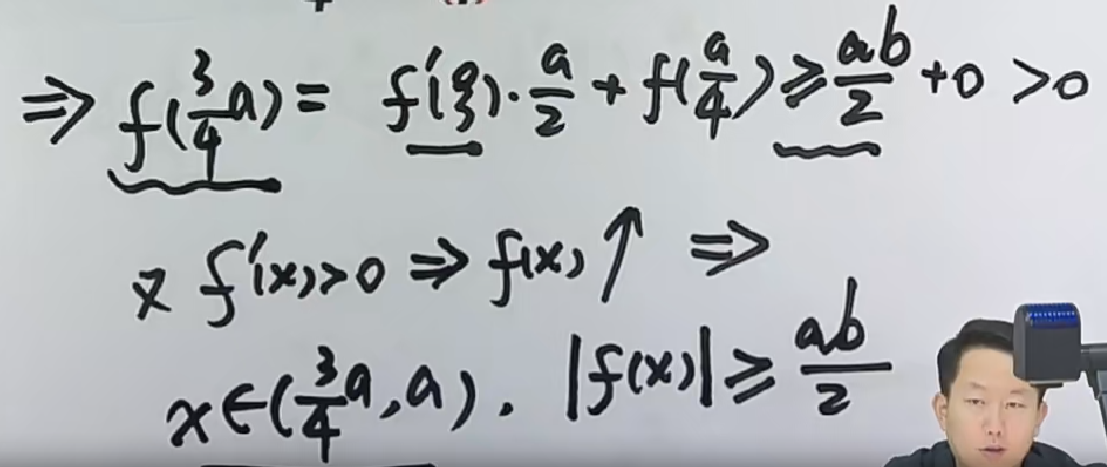 ⇒ f(3/4 a) = f'(ξ)·a/2 + f(a/4) ≥ ab/2 + 0 > 0
又 f'(x)>0 ⇒ f(x)↑ ⇒
x∈(3/4 a, a). |f(x)| ≥ ab/2